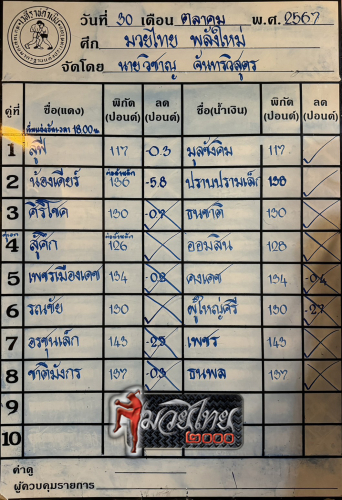 วันที่ 30 เดือน ตุลาคม พ.ศ. 2567
ศึก มวยไทย พลังใหม่
จัดโดย นายวิชาญ จันทรวิสูตร
คู่ที่ ชื่อ(แดง) พิกัด (ปอนด์) ลด (ปอนด์) ชื่อ(น้ำเงิน) พิกัด (ปอนด์) ลด (ปอนด์)
18.00 น.
1 ลูฟี่ 117 -0.3 117
2 น้องเคียร์ 136 -5.8 ปราบปรามเล็ก 138
3 คีรีโชค 130 ธนชาติ 130
4 126 ออมสิน 128
5 เพชรเมืองเดช 134 คงเดช 134 -0.4
6 รณชัย 130 ผู้ใหญ่ศรี 130 -2.7
7 อรชุนเล็ก 143 เพชร 143
8 ชาติมังกร 137 ธนพล 137
9
10
มวยไทย
2000
ค่าดู
ผู้ควบคุมรายการ